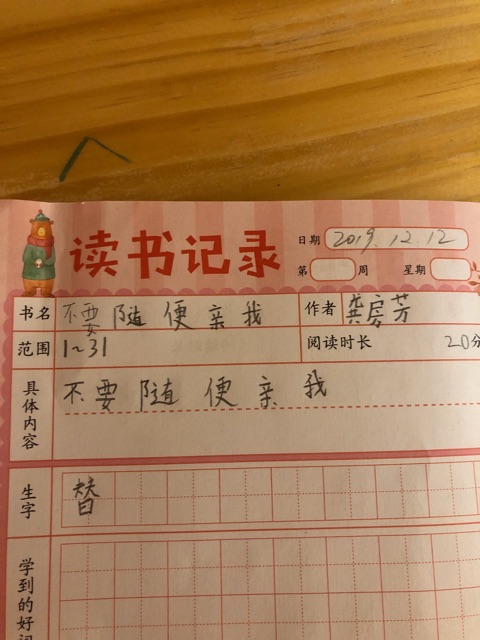 读书记录
日期 2019.12.12
第 周 星期
书名 不要随便亲我 作者 龚房芳
范围 1~31 阅读时长 20分
具体内容 不要随便亲我
生字 替
学到的好词